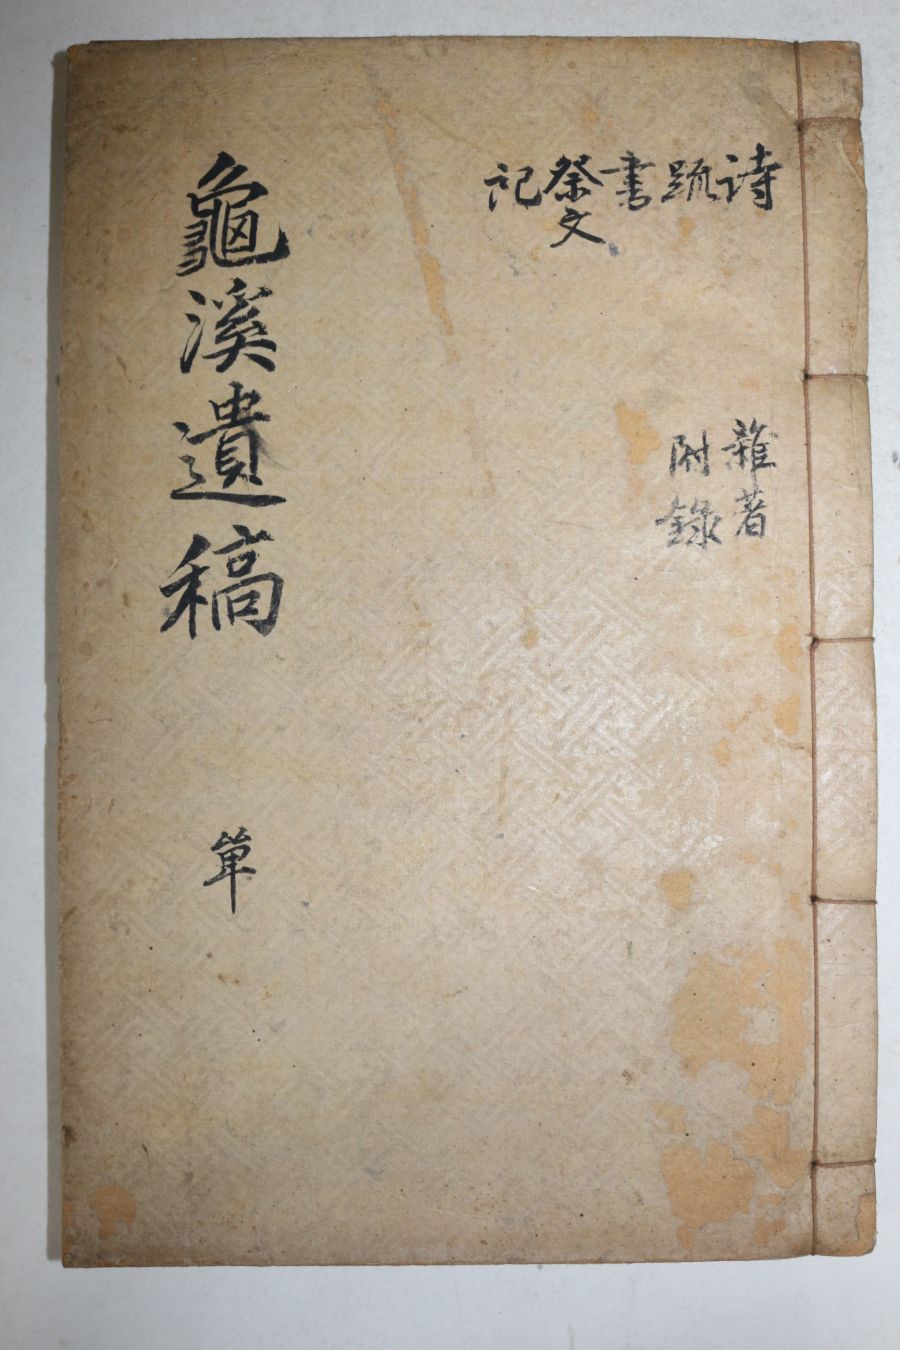 詩 疏 書 祭文 記
雜著
附錄
龜溪遺稿 單